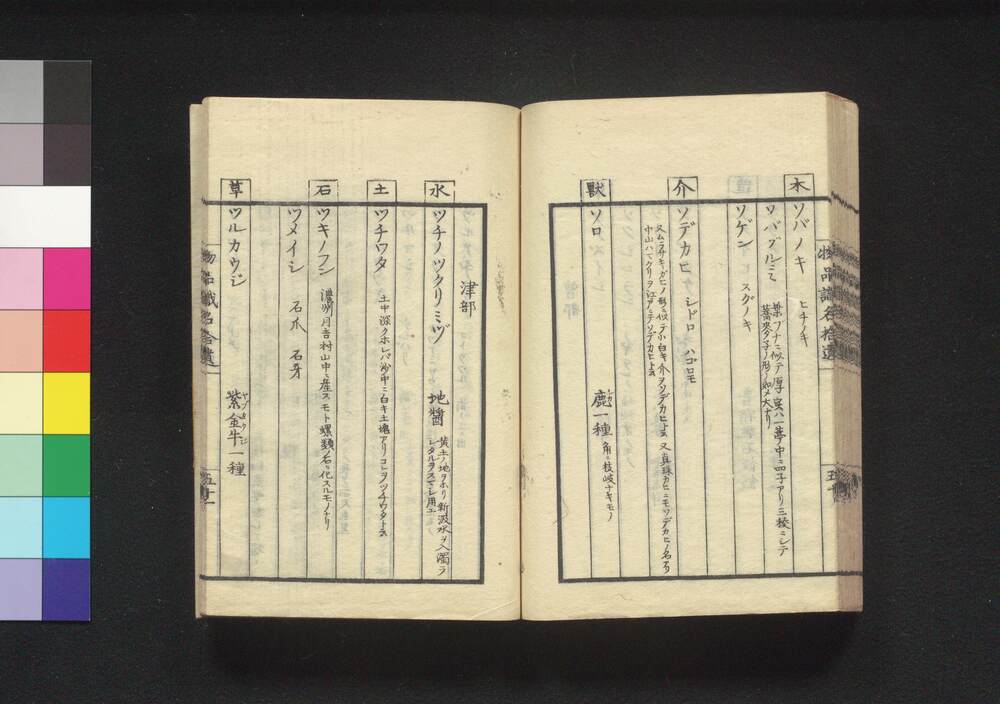 物品識名拾遺
木 ソバノキ ヒチノキ
ソバグルミ 葉ブナニ似テ厚 実ハ一蔕中ニ四子アリ三稜ニシテ
蕎麥ノ形ノ如ク大ナリ
ソゲン スグノキ
介 ソデカヒ シドロ ハゴロモ
又ムラサキガヒノ形ニ似テ小白キ介ヲソデカヒト云 又真珠カヒニモソデカヒノ名アリ
獸 ソロ 鹿一種 角ニ枝岐ナキモノ
津部
水 ツチノツクリミヅ 地醬 黄土ノ地ヲホリ新汲水ヲ入濁ラ
シタルヲスマシ用ユ
土 ツチワタ 土中深クホレバ沙中ニ白キ土塊アリコレヲツチワタト云
石 ツキノフン 濃州月吉村山中ニ産スモト螺類ノ石ニ化スルモノナリ
ツメイシ 石爪 石牙
草 ツルカウジ 紫金牛一種
物品識名拾遺
五十一